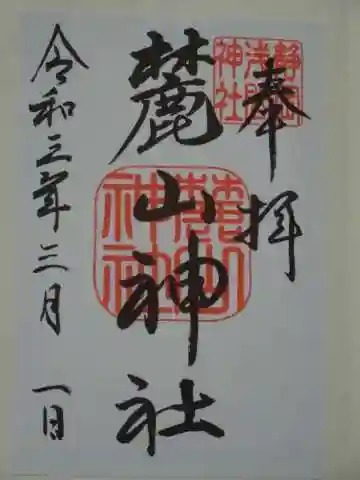 奉拝
静岡浅間神社
麓山神社
麓山神社
令和三年三月 一日